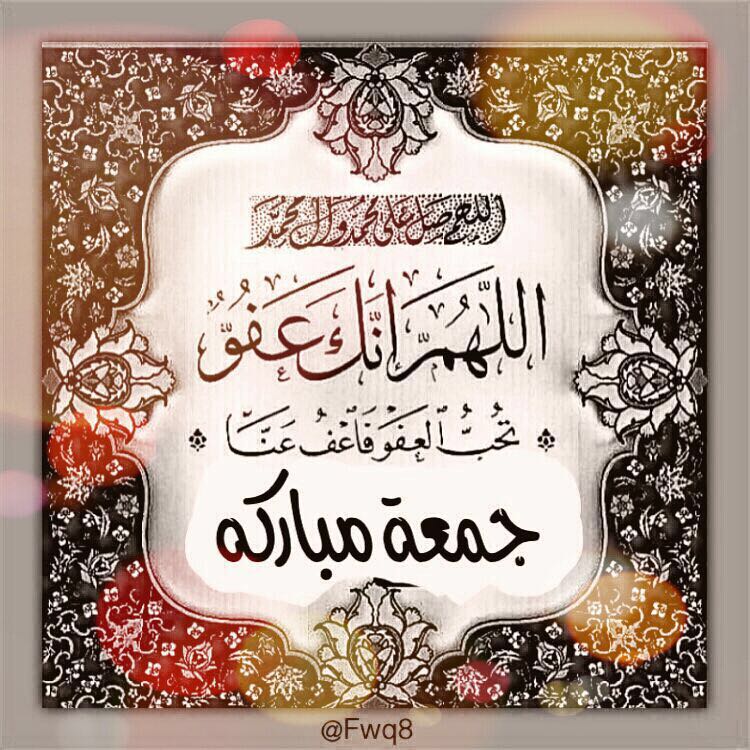 اللهم صل على محمد وال محمد
اللَّهُمَّ إِنَّكَ عَفُوٌّ
تُحِبُّ ٱلْعَفْوَ فَاعْفُ عَنَّا
جمعة مباركه
@Fwq8